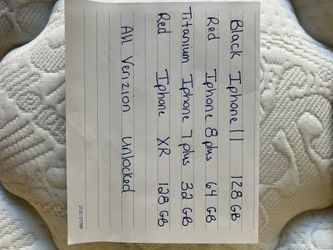 Black Iphone 11 128 GB
Red Iphone 8 plus 64 GB
Titanium Iphone 7 plus 32 GB
Red Iphone XR 128 GB
All Verizion unlocked